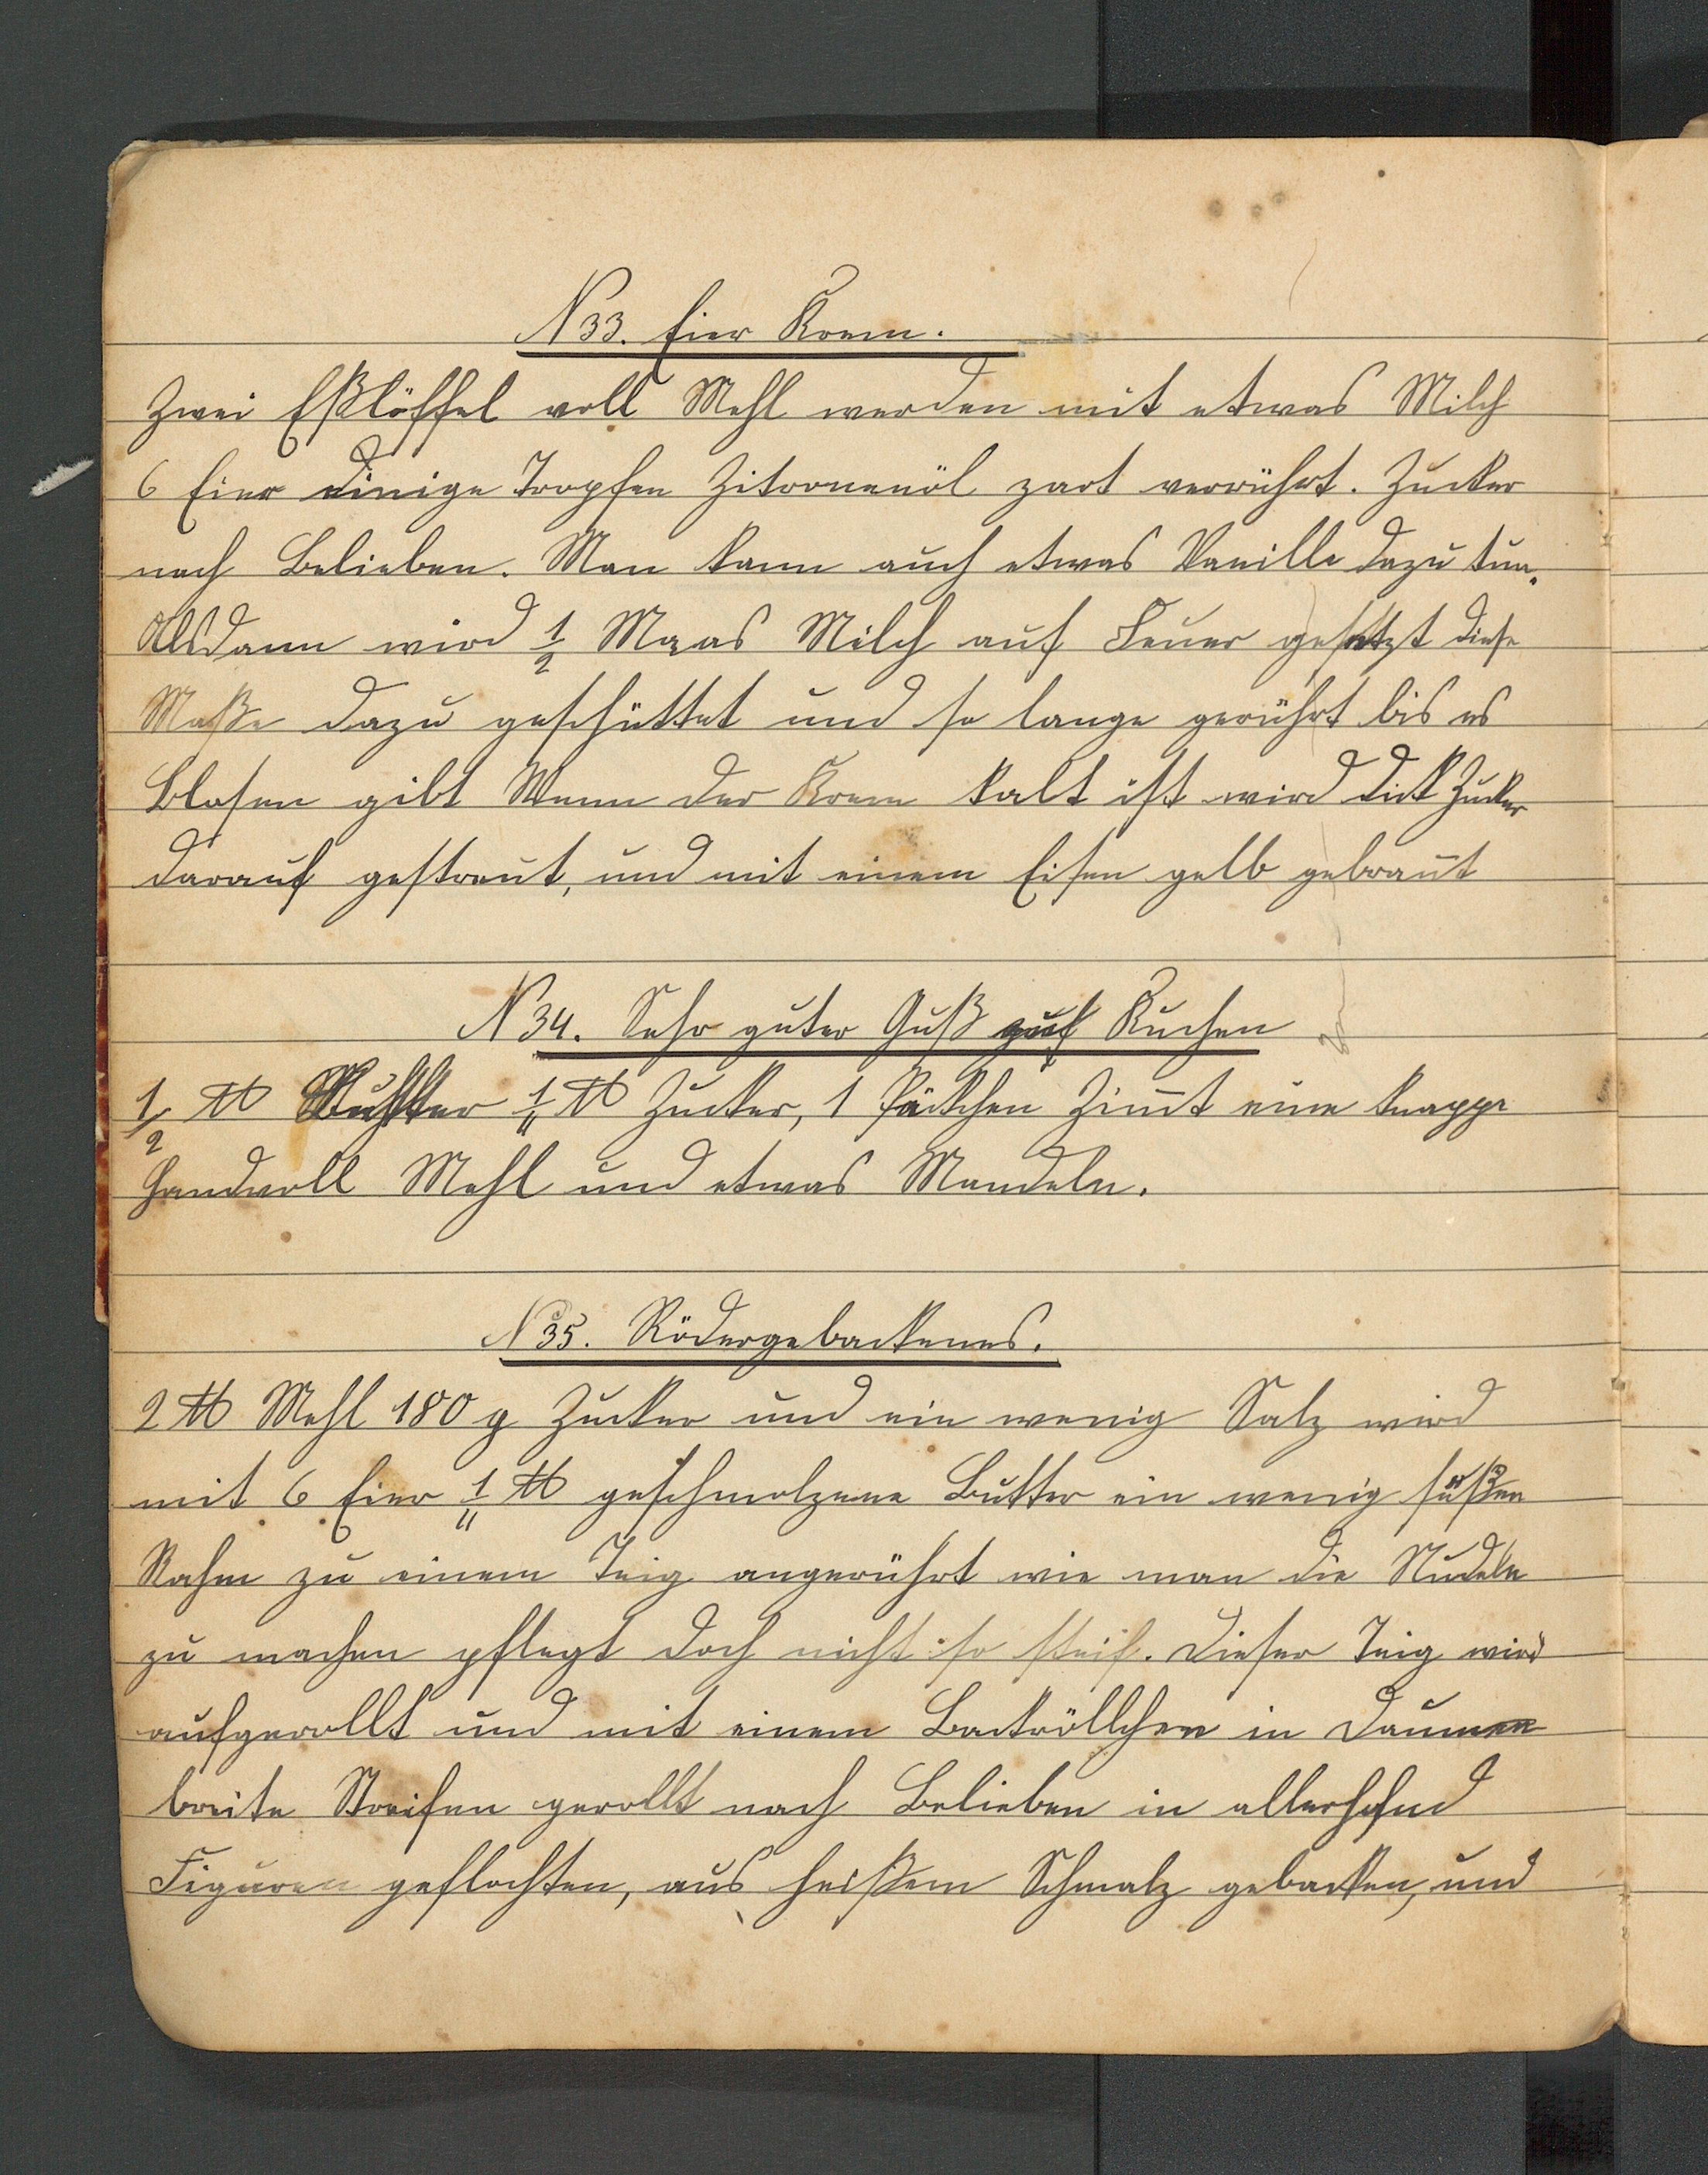 N 33. Eier Krem.
Zwei Eßlöffel voll Mehl werden mit etwas Milch
6 Eier einige Tropfen Zitronenöl zart verrührt. Zucker
nach Belieben. Man kann auch etwas Vanille dazu tun.
Alsdann wird 1/2 Maas Milch auf Feuer gesetzt diese
Maße dazu geschüttet und so lange gerührt bis es
Blasen gibt Wenn der Krem kalt ist wird dick Zucker
darauf gestreut, und mit einem Eisen gelb gebrannt
N 34. Sehr guter Guß auf Kuchen
1/2 ℔ Butter 1/4 ℔ Zucker, 1 Päckchen Zimt eine knappe
Handvoll Mehl und etwas Mandeln.
N 35. Rödergebackenes.
2 ℔ Mehl 180 g Zucker und ein wenig Salz wird
mit 6 Eier 1/4 ℔ geschmolzene Butter ein wenig süßen
Rahm zu einem Teig angerührt wie man die Nudeln
zu machen pflegt doch nicht so steif. Dieser Teig wird
aufgerollt und mit einem Backröllchen in Daumen
breite Streifen gerollt nach Belieben in allerhand
Figuren geflochten, aus heißem Schmalz gebacken, und